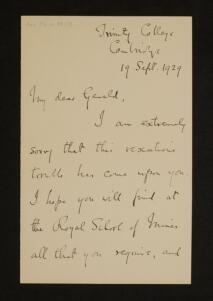 Trinity College
Cambridge
19 Sept. 1929
My dear Gerald,
I am extremely
sorry that this vexatious
trouble has come upon you.
I hope you will find at
the Royal School of Mines
all that you require, and